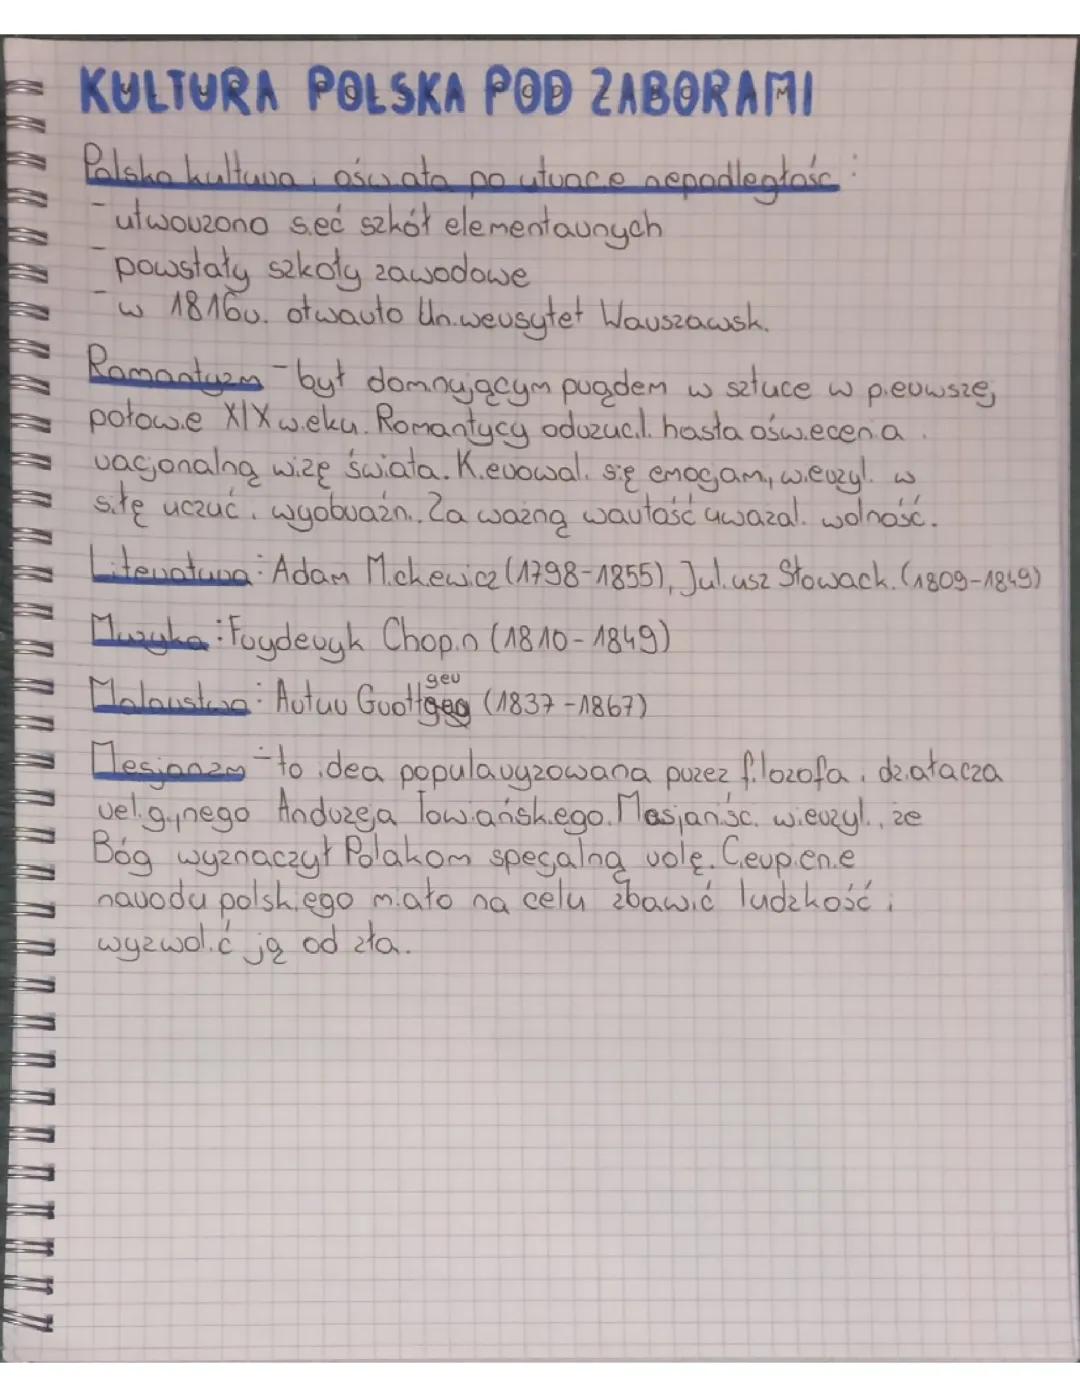 KULTURA POLSKA POD ZABORAMI
Polska kultura i oświata po utracie niepodległości:
- utworzono sieć szkół elementarnych
- powstały szkoły zawodowe
- w 1816r. otwarto Uniwersytet Warszawski.
Romantyzm - był dominującym prądem w sztuce w pierwszej
połowie XIX wieku. Romantycy odrzucili hasła oświecenia i
racjonalną wizję świata. Kierowali się emocjami, wierzyli w
siłę uczuć i wyobraźni. Za ważną wartość uważali wolność.
Literatura: Adam Mickiewicz (1798-1855), Juliusz Słowacki (1809-1849)
Muzyka: Fryderyk Chopin (1810-1849)
Malarstwo: Artur Grottger (1837-1867)
Mesjanizm - to idea popularyzowana przez filozofa i działacza
religijnego Andrzeja Towiańskiego. Mesjaniści wierzyli, że
Bóg wyznaczył Polakom specjalną rolę. Cierpienie
narodu polskiego miało na celu zbawić ludzkość i
wyzwolić ją od zła.